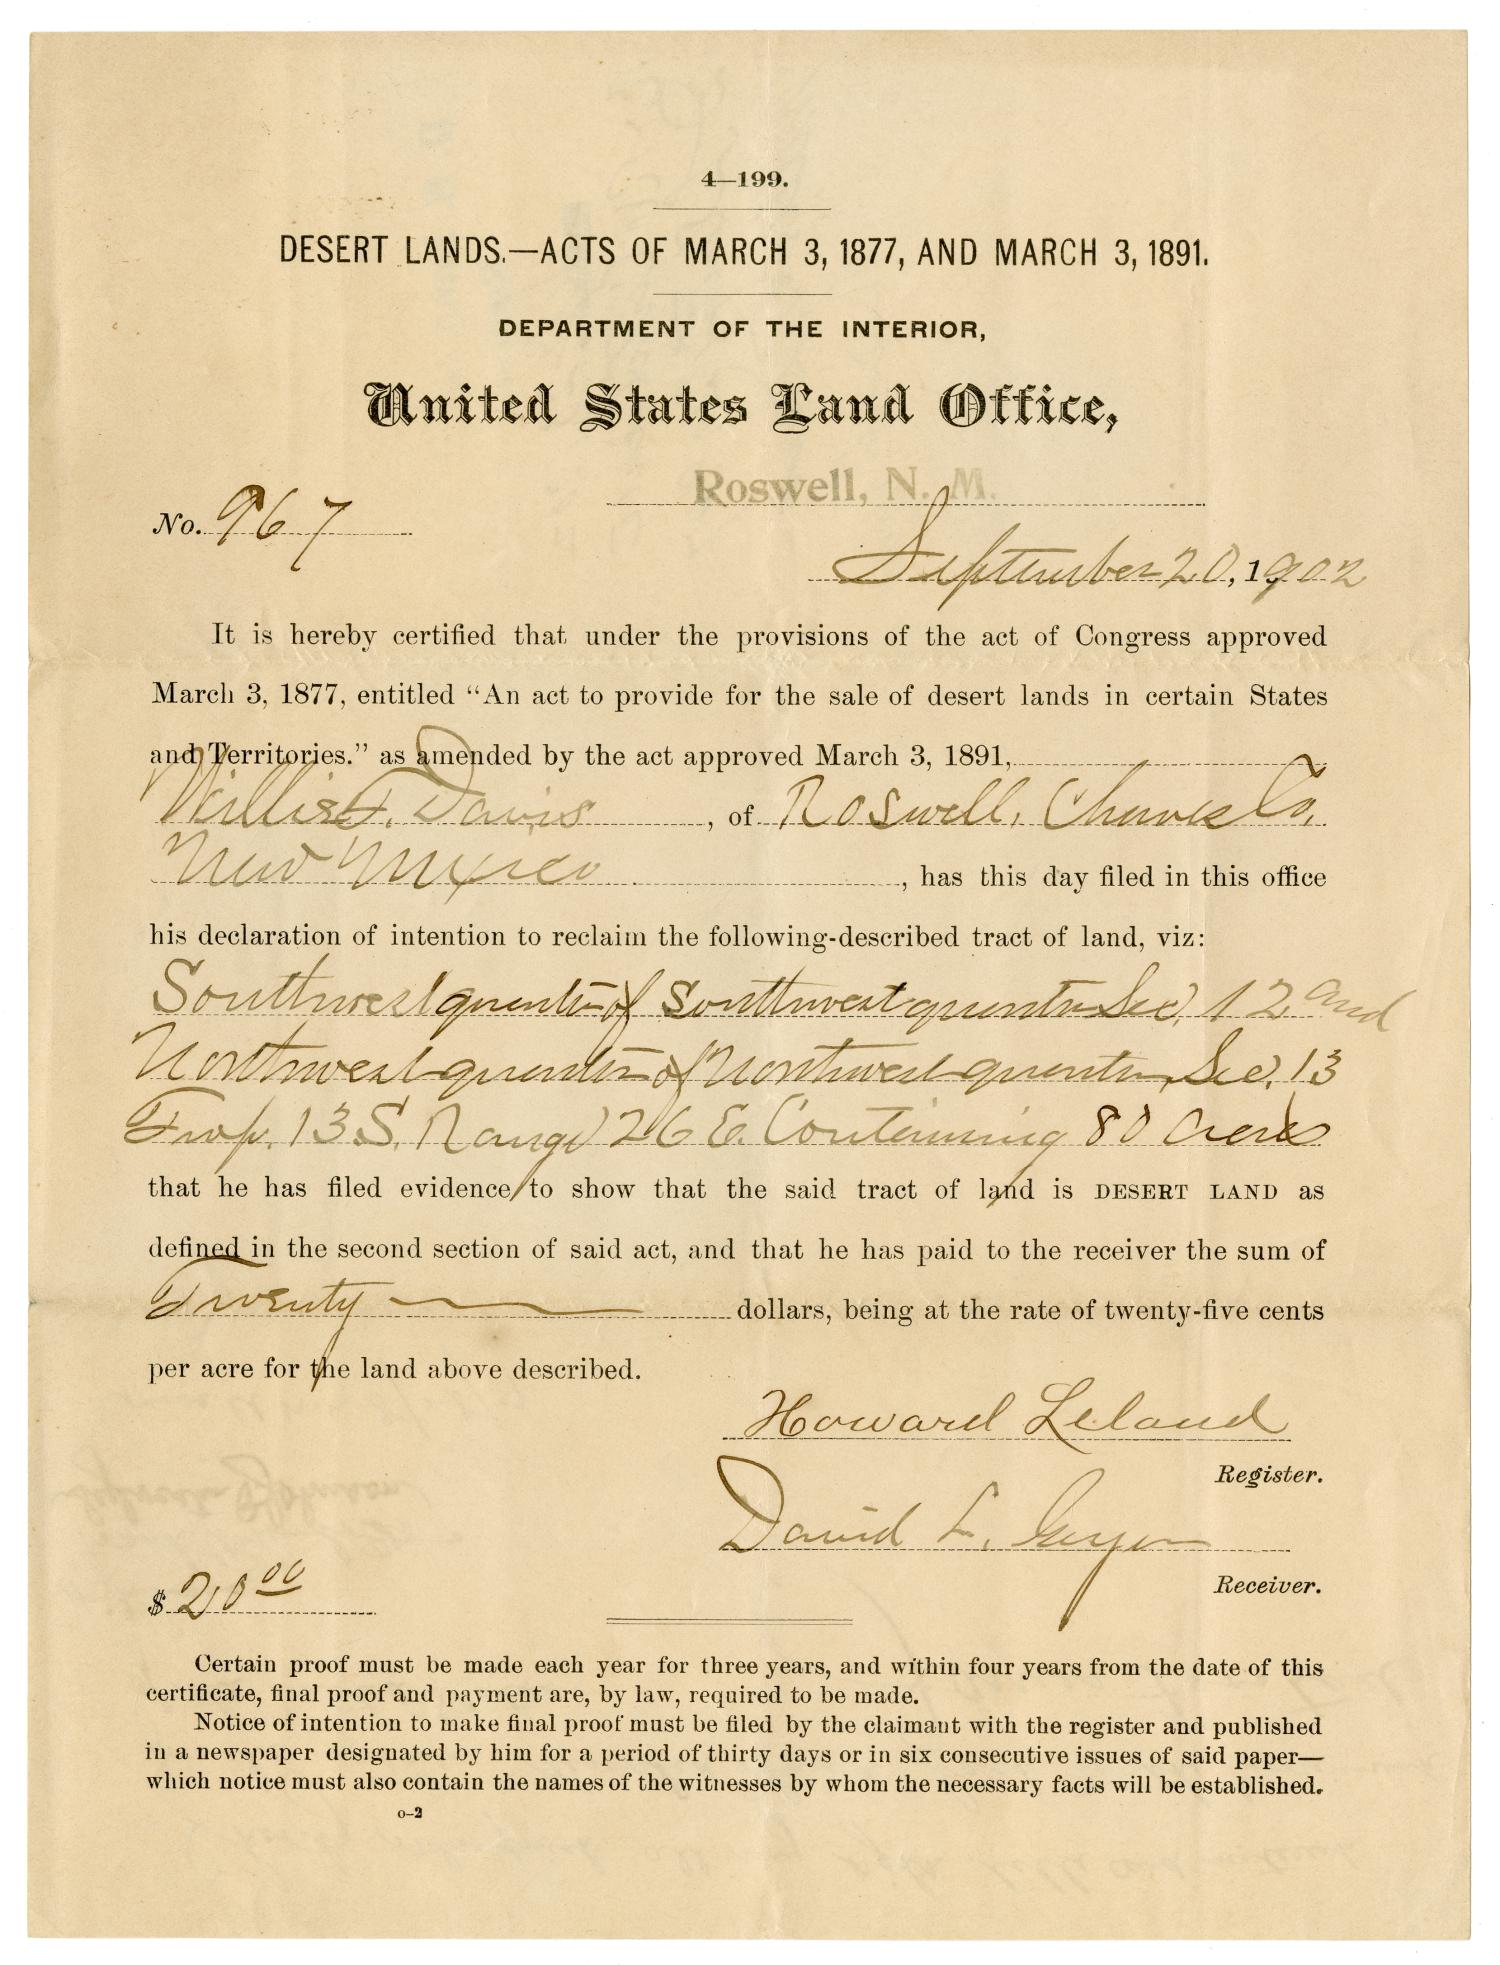 4—199.
DESERT LANDS.—ACTS OF MARCH 3, 1877, AND MARCH 3, 1891.
DEPARTMENT OF THE INTERIOR,
United States Land Office,
Roswell, N. M.
No. 967
September 20, 1902
It is hereby certified that under the provisions of the act of Congress approved
March 3, 1877, entitled “An act to provide for the sale of desert lands in certain States
and Territories.” as amended by the act approved March 3, 1891,
Willis F. Davis, of Roswell, Chaves Co,
New Mexico, has this day filed in this office
his declaration of intention to reclaim the following-described tract of land, viz:
Southwest quarter of Southwest quarter Sec. 12 and
Northwest quarter of Northwest quarter, Sec. 13
Twp. 13 S. Range 26 E. Containing 80 acres
that he has filed evidence to show that the said tract of land is DESERT LAND as
defined in the second section of said act, and that he has paid to the receiver the sum of
Twenty dollars, being at the rate of twenty-five cents
per acre for the land above described.
Howard Leland
Register.
David L. Geyer
Receiver.
$ 20 00
Certain proof must be made each year for three years, and within four years from the date of this
certificate, final proof and payment are, by law, required to be made.
Notice of intention to make final proof must be filed by the claimant with the register and published
in a newspaper designated by him for a period of thirty days or in six consecutive issues of said paper—
which notice must also contain the names of the witnesses by whom the necessary facts will be established.
o-2